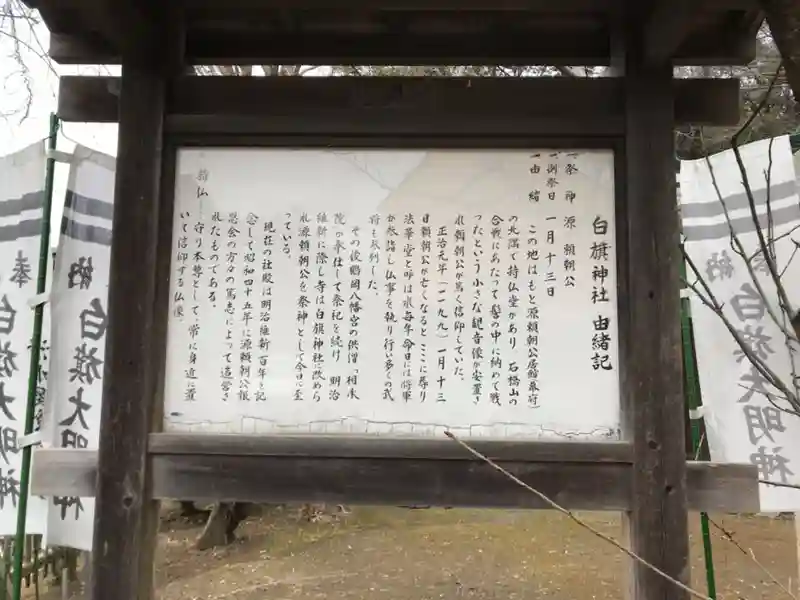 白旗神社 由緒記
一、祭神 源 頼朝公
一、例祭日 一月十三日
一、由緒
この地はもと源頼朝公居館(幕府)
の北隅で持仏堂があり 石橋山の
合戦にあたって髻の中に納めて戦
ったという小さな観音像が安置さ
れ頼朝公が篤く信仰していた。
正治元年(一一九九)一月十三
日頼朝公が亡くなるとここに葬り
法華堂と呼ばれ毎年命日には将軍
が参詣し仏事を執り行い多くの武
将も参列した。
その後鶴岡八幡宮の供僧「相承
院」が奉仕して祭祀を続け 明治
維新に際し寺は白旗神社に改めら
れ源頼朝公を祭神として今日に至
っている。
現在の社殿は明治維新百年を記
念して昭和四十五年に源頼朝公報
恩会の方々の篤志によって造営さ
れたものである。
持仏……守り本尊として、常に身近に置
いて信仰する仏像。
奉
大明神
納
白旗大明神
納
白旗大明神